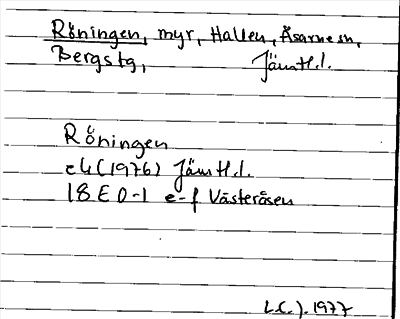 Röningen, myr, Hallen, Åsarne sn,
Bergs tg, Jämtl.l.
Röningen
ek (1976) Jämtl.l.
18E 0-1 e-f Västeråsen
L.C.J. 1977